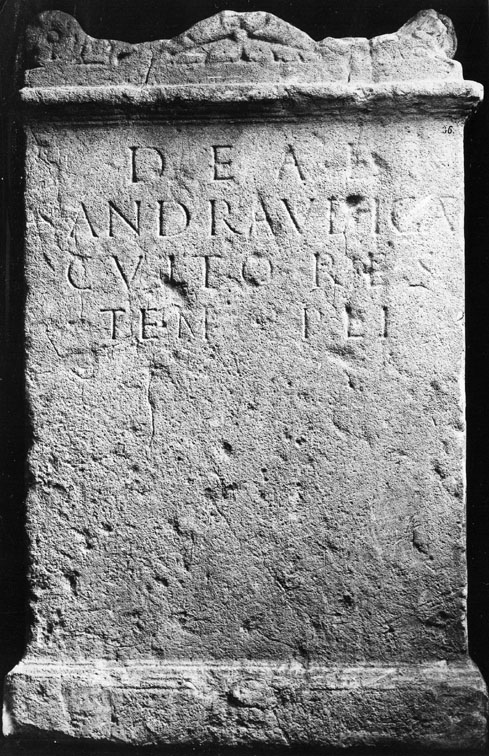 DEAE
SANDRAVDIGAE
CVLTORES
TEMPLI